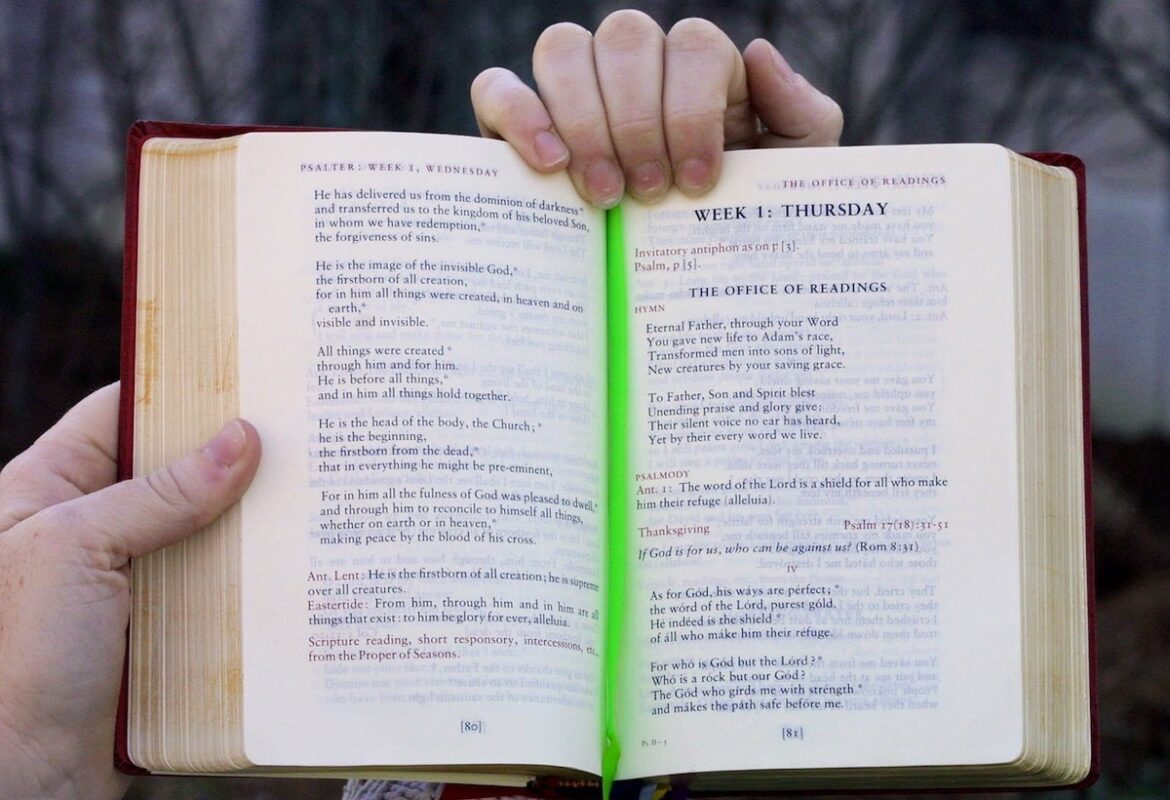 PSALTER: WEEK 1, WEDNESDAY
He has delivered us from the dominion of darkness*
and transferred us to the kingdom of his beloved Son,
in whom we have redemption,*
the forgiveness of sins.
He is the image of the invisible God,*
the firstborn of all creation,
for in him all things were created, in heaven and on
earth,*
visible and invisible.
All things were created *
through him and for him.
He is before all things,*
and in him all things hold together.
He is the head of the body, the Church; *
he is the beginning,
the firstborn from the dead,*
that in everything he might be pre-eminent,
For in him all the fulness of God was pleased to dwell,*
and through him to reconcile to himself all things,
whether on earth or in heaven,*
making peace by the blood of his cross.
Ant. Lent: He is the firstborn of all creation; he is supreme
over all creatures.
Eastertide: From him, through him and in him are all
things that exist: to him be glory for ever, alleluia.
Scripture reading, short responsory, intercessions, etc.,
from the Proper of Seasons.
[80]
THE OFFICE OF READINGS
WEEK 1: THURSDAY
Invitatory antiphon as on p [3].
Psalm, p [5].
THE OFFICE OF READINGS
HYMN
Eternal Father, through your Word
You gave new life to Adam's race,
Transformed men into sons of light,
New creatures by your saving grace.
To Father, Son and Spirit blest
Unending praise and glory give:
Their silent voice no ear has heard,
Yet by their every word we live.
PSALMODY
Ant. 1: The word of the Lord is a shield for all who make
him their refuge (alleluia).
Thanksgiving Psalm 17(18):31-51
If God is for us, who can be against us? (Rom 8:31)
IV
As for Gód, his wáys are pérfect; *
the wórd of the Lórd, purest góld.
Hé indéed is the shíeld *
of áll who máke him their réfuge.
For whó is Gód but the Lórd?*
Whó is a róck but our Gód?
The Gód who gírds me with stréngth *
and mákes the páth safe befóre me.
Pt. II—3
[81]